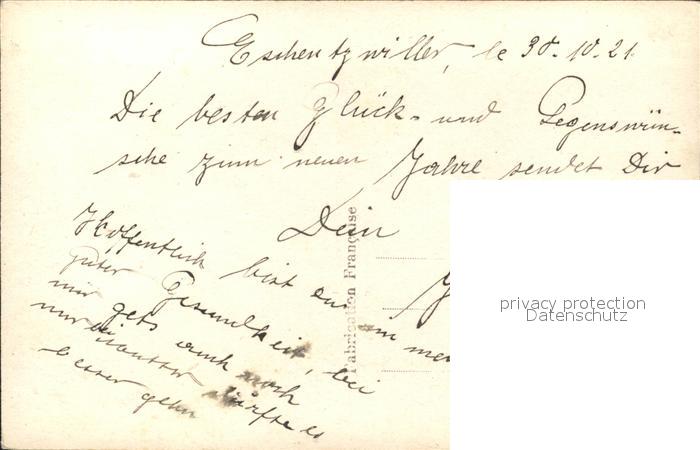 Eschentzwiller, le 30.10.21.
Die besten Glück- und Segenswün-
sche zum neuen Jahre sendet Dir
Dein
Hoffentlich bist du in
guter Gesundheit, bei
mir gets auch noch
nur bei Mutter dürfte es
besser gehn
Fabrication Française
privacy protection
Datenschutz